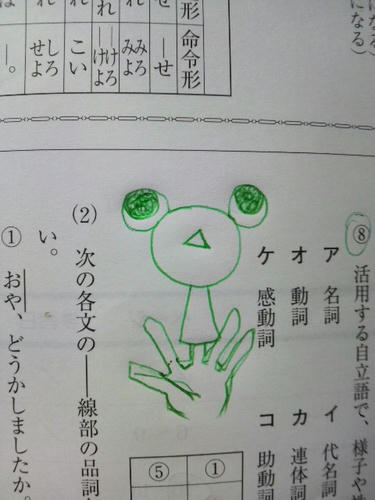 なる)
になる)
形 命令形
せ ―せ
れ みろ みよ
れ ―けろ ―けよ
れ こい
れ しろ せよ
―。
⑧ 活用する自立語で、様子や
ア 名詞 イ 代名詞
オ 動詞 カ 連体詞
ケ 感動詞 コ 助動詞
①
⑤
(2) 次の各文の――線部の品詞
い。
① おや、どうかしましたか。